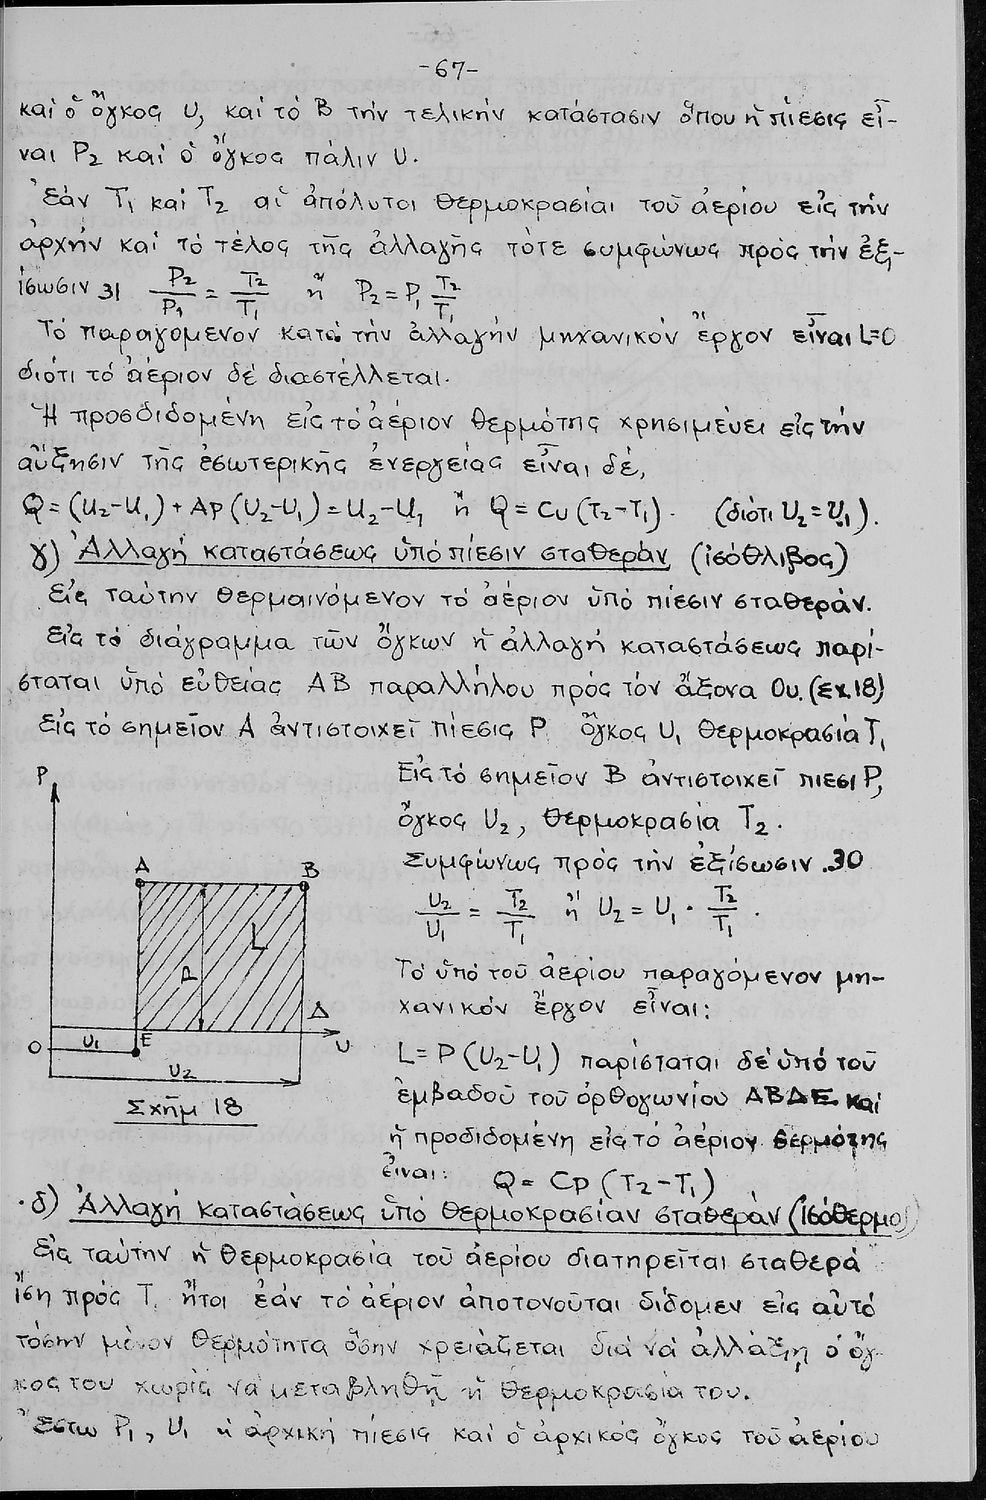 -67-
καί ὁ ὄγκος υ, καί τό Β τήν τελικήν κατάστασιν ὅπου ἡ πίεσις εἶ-
ναι P₂ καί ὁ ὄγκος πάλιν υ.
Ἐάν Τ₁ καί Τ₂ αἱ ἀπόλυτοι θερμοκρασίαι τοῦ ἀερίου εἰς τήν
ἀρχήν καί τό τέλος τῆς ἀλλαγῆς τότε συμφώνως πρός τήν ἐξ-
ίσωσιν 31 P₂/P₁ = T₂/T₁ ἤ P₂ = P₁ T₂/T₁
Τό παραγόμενον κατά τήν ἀλλαγήν μηχανικόν ἔργον εἶναι L=0
διότι τό ἀέριον δέ διαστέλλεται.
Ἡ προσδιδομένη εἰς τό ἀέριον θερμότης χρησιμεύει εἰς τήν
αὔξησιν τῆς ἐσωτερικῆς ἐνεργείας εἶναι δέ,
Q = (U₂-U₁) + Ap (υ₂-υ₁) = U₂-U₁ ἤ Q = Cυ (T₂-T₁). (διότι υ₂ = υ₁).
γ) Ἀλλαγή καταστάσεως ὑπό πίεσιν σταθεράν (ἰσόθλιβος)
Εἰς ταύτην θερμαινόμενον τό ἀέριον ὑπό πίεσιν σταθεράν.
Εἰς τό διάγραμμα τῶν ὄγκων ἡ ἀλλαγή καταστάσεως παρί-
σταται ὑπό εὐθείας ΑΒ παραλλήλου πρός τόν ἄξονα Ου. (σχ.18)
Εἰς τό σημεῖον Α ἀντιστοιχεῖ πίεσις P ὄγκος υ₁ θερμοκρασία Τ₁
Εἰς τό σημεῖον Β ἀντιστοιχεῖ πίεσι P,
ὄγκος υ₂, θερμοκρασία Τ₂.
Συμφώνως πρός τήν ἐξίσωσιν .30
υ₂/υ₁ = T₂/T₁ ἤ υ₂ = υ₁ · T₂/T₁ .
Τό ὑπό τοῦ ἀερίου παραγόμενον μη-
χανικόν ἔργον εἶναι:
L = P (υ₂-υ₁) παρίσταται δέ ὑπό τοῦ
ἐμβαδοῦ τοῦ ὀρθογωνίου ΑΒΔΕ καί
ἡ προδιδομένη εἰς τό ἀέριον θερμότης
εἶναι: Q = Cp (T₂-T₁)
P
A
B
L
P
Δ
E
O
υ₁
υ
υ₂
Σχῆμ 18
δ) Ἀλλαγή καταστάσεως ὑπό θερμοκρασίαν σταθεράν (ἰσόθερμος)
Εἰς ταύτην ἡ θερμοκρασία τοῦ ἀερίου διατηρεῖται σταθερά
ἴση πρός Τ, ἤτοι ἐάν τό ἀέριον ἀποτονοῦται δίδομεν εἰς αὐτό
τόσην μόνον θερμότητα ὅσην χρειάζεται διά νά ἀλλάξη ὁ ὄγ-
κος του χωρίς νά μεταβληθῆ ἡ θερμοκρασία του.
Ἔστω P₁, υ₁ ἡ ἀρχική πίεσις καί ὁ ἀρχικός ὄγκος τοῦ ἀερίου